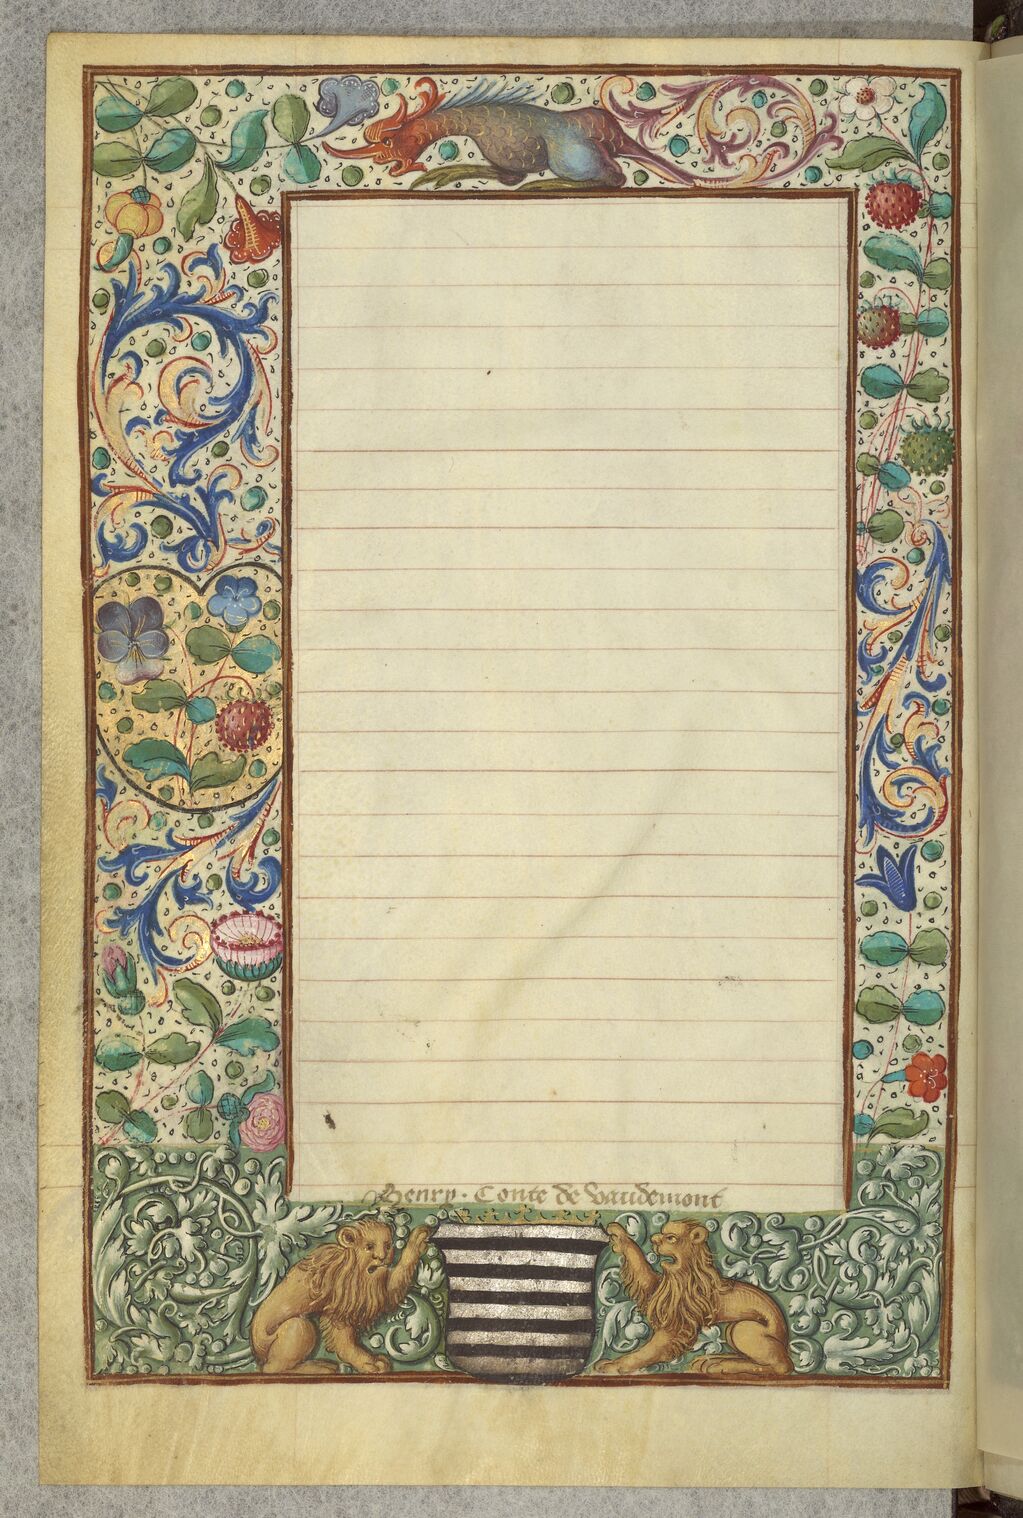 Henry · Conte de Vaudemont